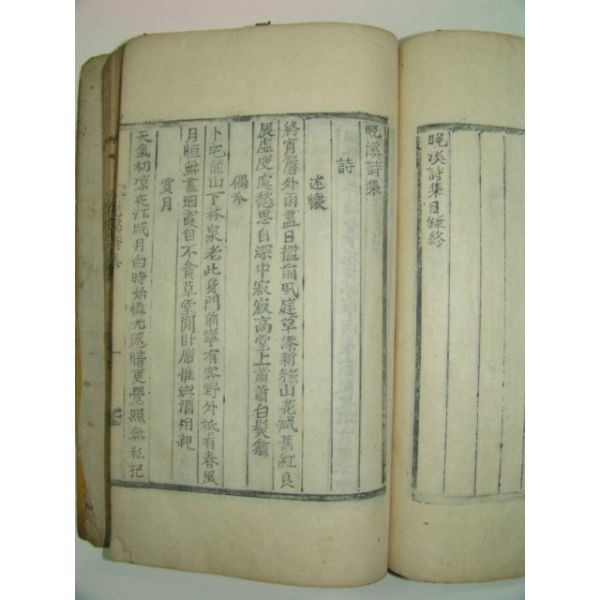 晚溪詩集目錄終
晚溪詩集
詩
述懷
終宵簷外雨盡日檻前風庭草添新綠山花減舊紅良
展虛度處愁思自深中寂寂高堂上蕭蕭白髮翁
偶吟
卜宅龍山下林泉老此身門前寧有客野外秪有春風
月恒無盡烟霞自不貪草堂閒卧席惟與酒相親
賞月
天氣初凉夜江城月白時始憐光遠暗更覺照無私把